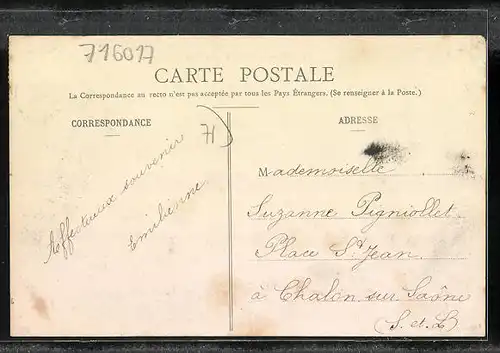 716017
CARTE POSTALE
La Correspondance au recto n'est pas acceptée par tous les Pays Étrangers. (Se renseigner à la Poste.)
CORRESPONDANCE
71
ADRESSE
Affectueux souvenir
Emilienne
Mademoiselle
Suzanne Pigniollet
Place St Jean
à Chalon sur Saône
(S. et L)